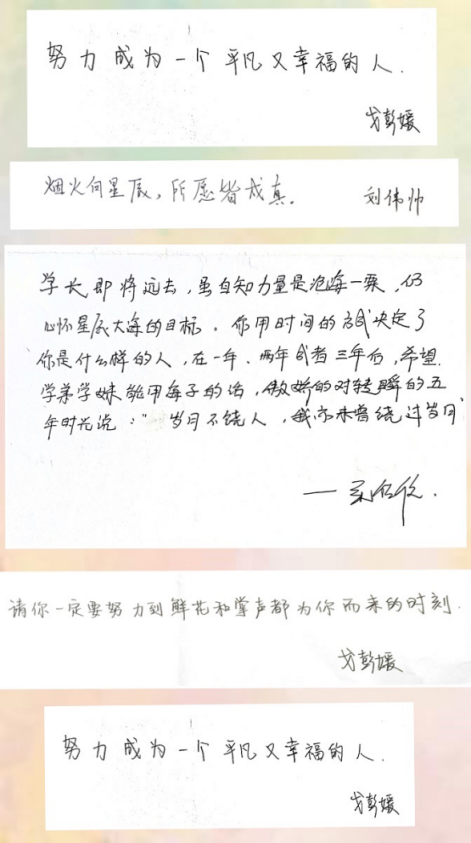 努力成为一个平凡又幸福的人.
戈彭媛
烟火向星辰，所愿皆成真.
刘伟帅
学长即将远去，虽自知力量是沧海一粟，仍
心怀星辰大海的目标. 你用时间的方式决定了
你是什么样的人，在一年、两年或者三年后，希望
学弟学妹能用每子的话，傲娇的对转瞬的五
年时光说：“岁月不饶人，我亦未曾饶过岁月”
请你一定要努力到鲜花和掌声都为你而来的时刻.
戈彭媛
努力成为一个平凡又幸福的人.
戈彭媛